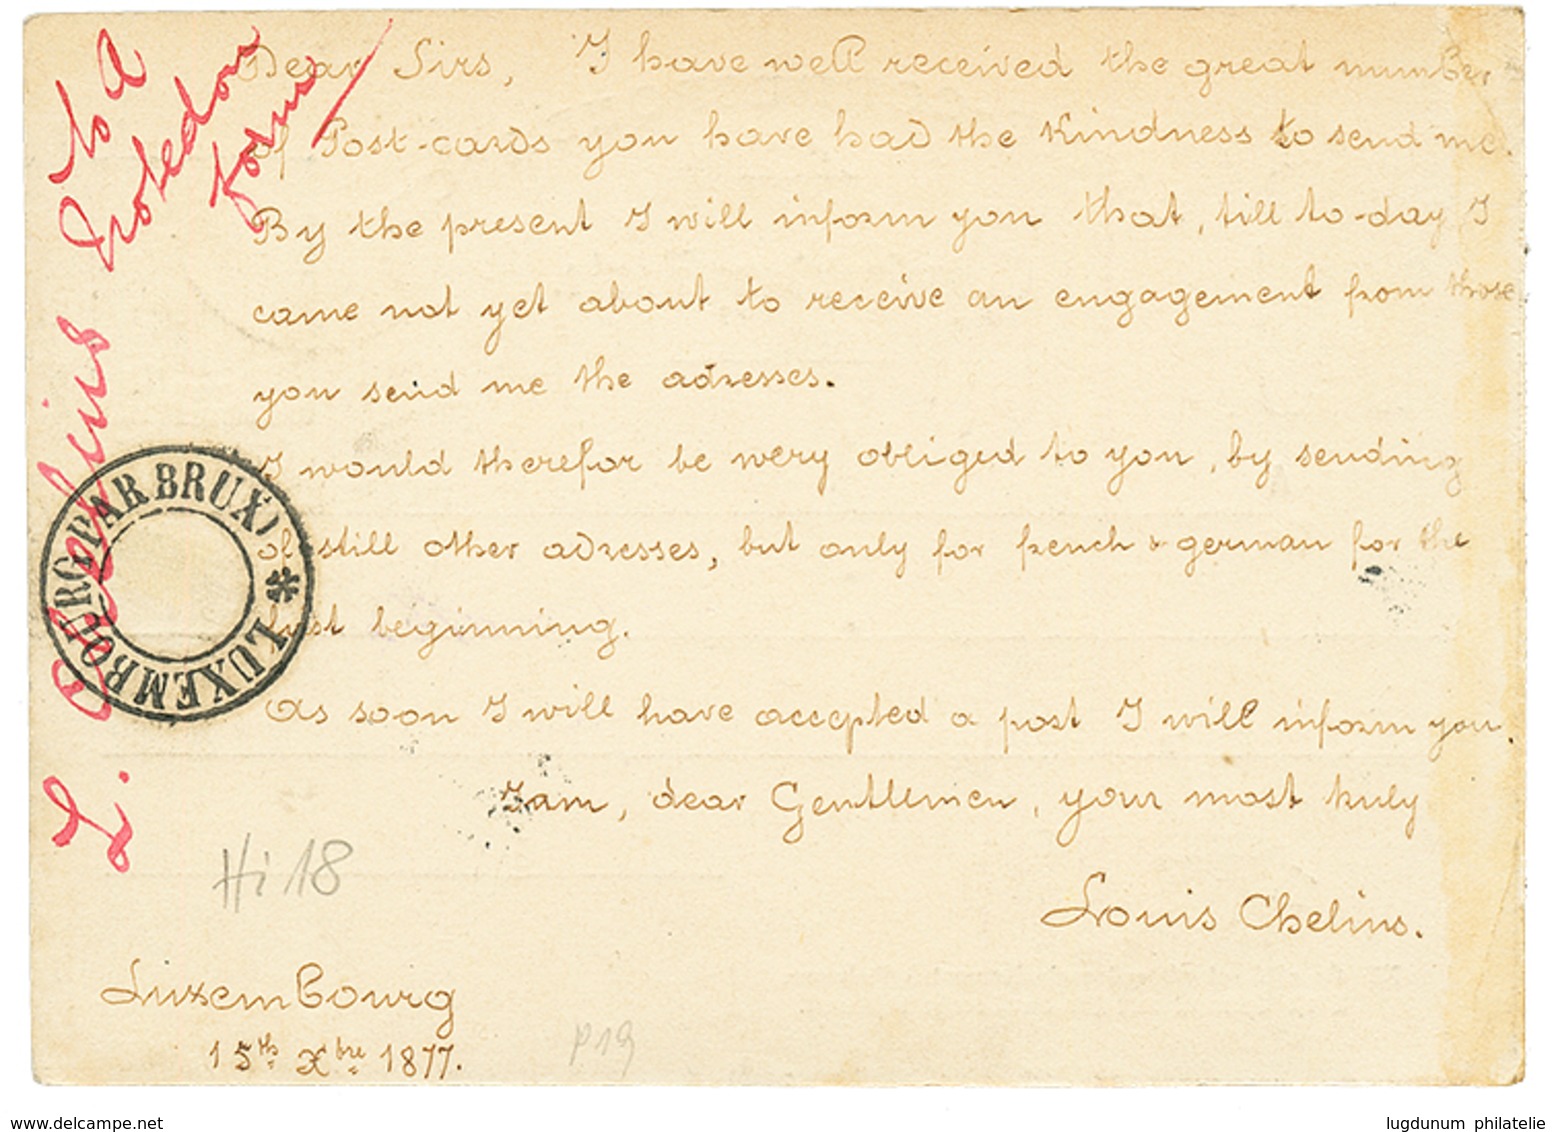 Dear Sirs, I have well received the great number
of Post-cards you have had the Kindness to send me.
By the present I will inform you that, till to-day I
came not yet about to receive an engagement from those
you send me the adresses.
I would therefor be wery obliged to you, by sending
of still other adresses, but only for french & german for the
just beginning.
As soon I will have accepted a post I will inform you.
I am, dear Gentlemen, your most truly
Louis Chelius.
Luxembourg
15th Xbre 1877.
L. Chelius
to A
forms
LUXEMBOURG (PAR BRUX) * 
Hi 18
P19
www.delcampe.net
lugdunum philatelie